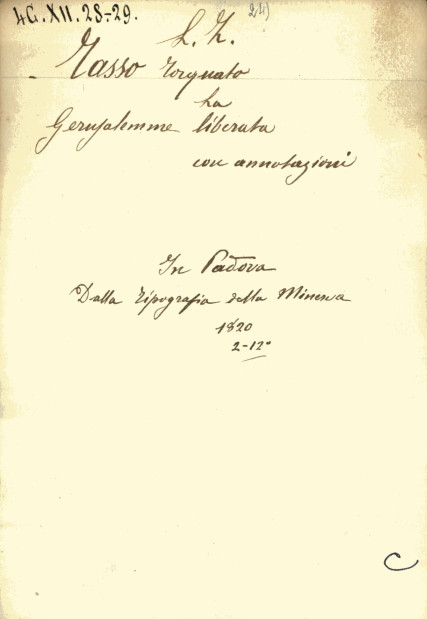 4G.XII.28-29.
L. I.
Tasso Torquato
La
Gerusalemme liberata
con annotazioni
In Padova
Dalla Tipografia della Minerva
1820
2-12°
C